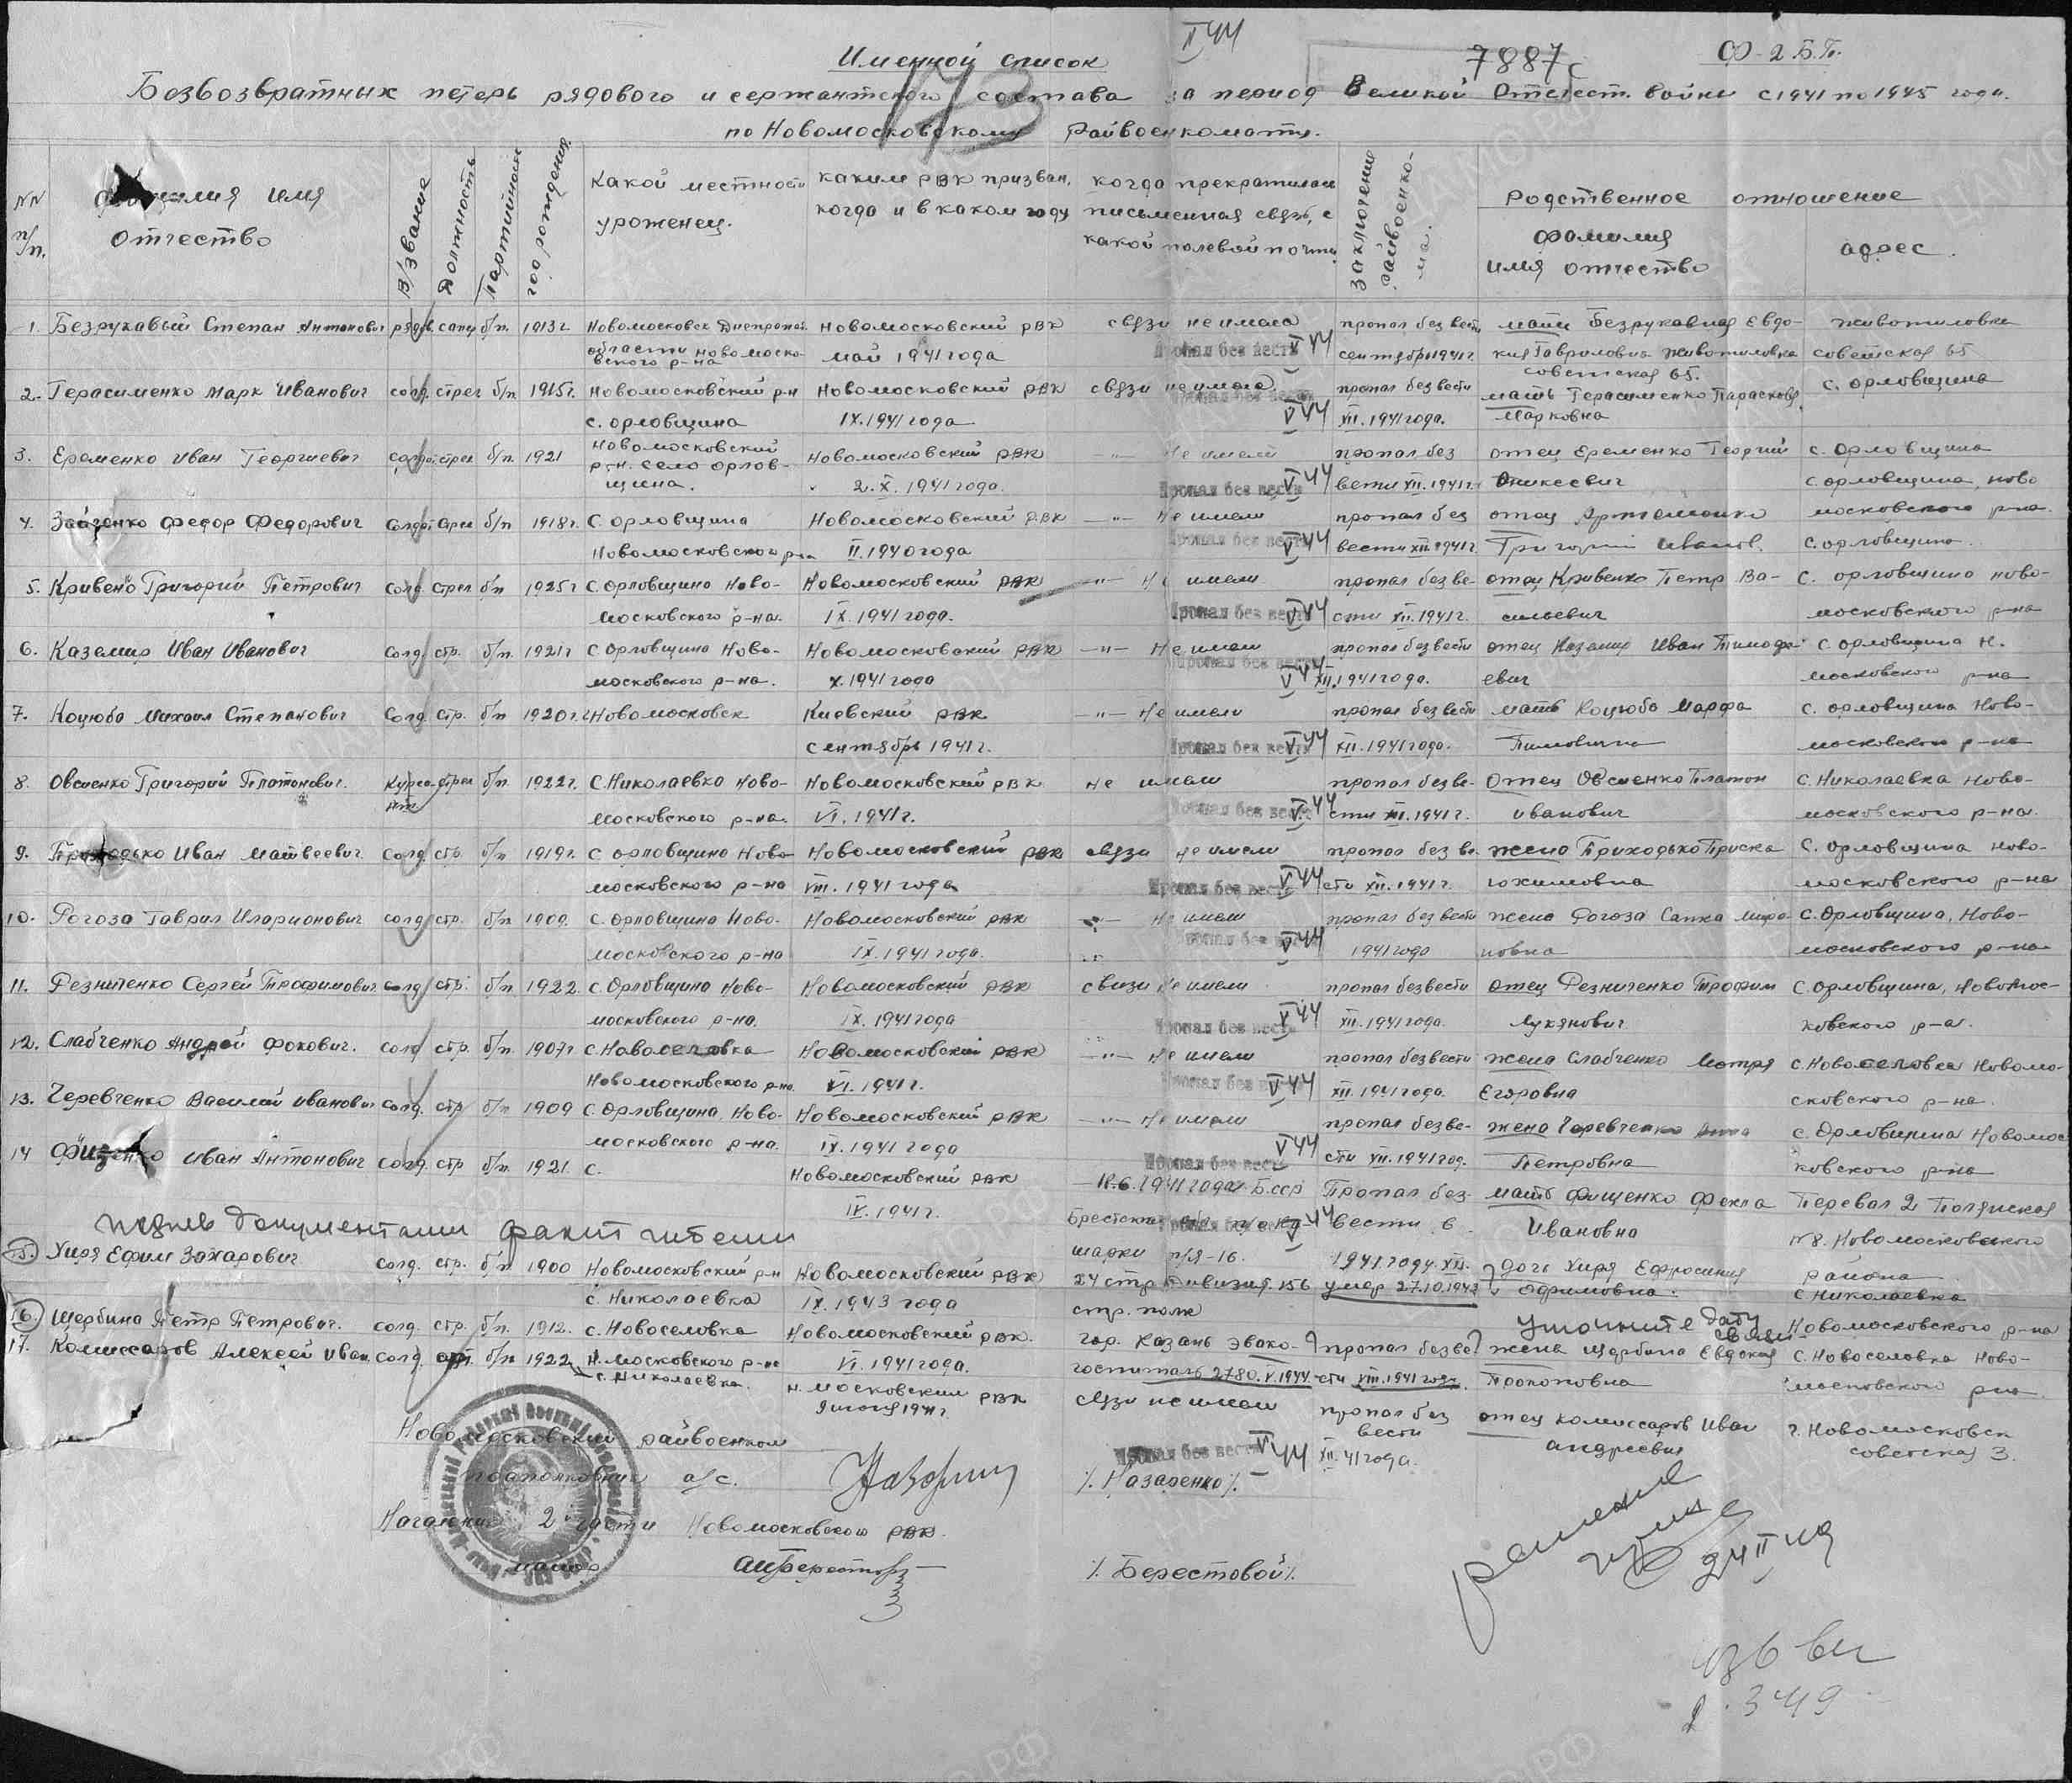 V 44
Именной список
7887с
Ф-2 Б.П.
Безвозвратных потерь рядового и сержантского состава за период Великой Отечест. войны с 1941 по 1945 года.
173
по Новомосковскому Райвоенкомату.
NN п/п.
Фамилия имя отчество
В/звание
Должность
Партийность
год рождения
Какой местности уроженец.
каким РВК призван, когда и в каком году
когда прекратилась письменная связь, с какой полевой почты
заключение райвоенкома.
Родственное отношение
фамилия имя отчество
адрес.
1. Безрукавый Степан Антонович рядов. сапер б/п. 1913 г. Новомосковск Днепропет. Новомосковский РВК связи не имела пропал без вести мать Безрукавная Евдо- Животиловка
области Новомоско- вского р-на май 1941 года Пропал без вести V 44 сентябрь 1941 г. кия Гавриловна Животиловка советская 65
советская 65.
2. Герасименко Марк Иванович солд. стрел б/п 1915 г. Новомосковский р-н Новомосковский РВК связи не имела пропал без вести мать Герасименко Парасковя с. Орловщина
с. Орловщина IX. 1941 года Пропал без вести V 44 XII. 1941 года. Марковна
3. Еременко Иван Георгиевич солдат стрел б/п 1921 Новомосковский Новомосковский РВК —"— не имели пропал без отец Еременко Георгий с. Орловщина
р-н. село Орлов- щина. 2. X. 1941 года. Пропал без вести V 44 вести XII. 1941 г. Аникеевич с. Орловщина, Ново
4. Федор Федорович солдат стрел б/п 1918 г. С. Орловщина Новомосковский РВК —"— не имели пропал без отец московского р-на.
Новомосковского р-на II. 1940 года Пропал без вести V 44 вести XII. 1941 г. Григорий Иванов. с. Орловщина.
5. Кривено Григорий Петрович солд. стрел б/п 1925 г С. Орловщина Ново- Новомосковский РВК —"— не имели пропал без ве- отец Кривенко Петр Ва- с. Орловщина Ново-
московского р-на. IX. 1941 года. Пропал без вести V 44 сти XII. 1941 г. сильевич московского р-на
6. Каземир Иван Иванович солд. стр. б/п. 1921 г С. Орловщина Ново- Новомосковский РВК —"— не имели пропал без вести отец Каземир Иван Тимофе- с Орловщина Н.
московского р-на. X. 1941 года Пропал без вести V 44 XII. 1941 года. евич московского р-на
7. Коцюба Михаил Степанович Солд. стр. б/п 1920 г. г Новомосковск Киевский РВК —"— не имели пропал без вести мать Коцюба Марфа с. Орловщина Ново-
сентябрь 1941 г. Пропал без вести V 44 XII. 1941 года. московского р-на
8. Овсиенко Григорий Платонович. Курсант стрел б/п 1922 г. С. Николаевка Ново- Новомосковский РВК не имели пропал без ве- Отец Овсиенко Платон С. Николаевка Ново-
московского р-на. VI. 1941 г. Пропал без вести V 44 сти XII. 1941 г. Иванович московского р-на.
9. Приходько Иван Матвеевич солд. стр. б/п 1919 г. С Орловщина Ново Новомосковский РВК связи не имели пропал без ве- жена Приходько Приска С. Орловщина Ново-
московского р-на VIII. 1941 года Пропал без вести V 44 сти XII. 1941 г. Юхимовна московского р-на
10. Рогоза Гаврил Иларионович солд. стр. б/п 1909. с. Орловщина Ново- Новомосковский РВК —"— не имели пропал без вести жена Рогоза С. Орловщина, Ново-
московского р-на IX. 1941 года. Пропал без вести V 44 1941 года новна московского р-на
11. Резниченко Сергей Трофимович солд стр. б/п 1922. с. Орловщина Ново- Новомосковский РВК связи не имели пропал без вести отец Резниченко Трофим С. Орловщина, Новомос-
московского р-на. IX. 1941 года Пропал без вести V 44 XII. 1941 года. Лукянович ковского р-на.
12. Слабченко Андрей Фокович. солд стр. б/п 1907 г с. Новоселовка Новомосковский РВК —"— не имели пропал без вести жена Слабченко Мотря с. Новоселовка Новомо-
Новомосковского р-на. VI. 1941 г. Пропал без вести V 44 XII. 1941 года. Егоровна сковского р-на.
13. Черевченко Василий Иванович солд. стр б/п 1909 С. Орловщина, Ново- Новомосковский РВК —"— не имели пропал без ве- жена Черевченко Анна с. Орловщина Новомос
московского р-на. IX. 1941 года Пропал без вести V 44 сти XII. 1941 год. Петровна ковского р-на
14 Фищенко Иван Антонович солд. стр б/п 1921. с. Новомосковский РВК 18.6.1941 года Б.ССР Пропал без- мать Фищенко Фекла Перевал 2 Полянская
IV. 1941 г. Брестская обл. V 44 вести в Ивановна N 8. Новомосковского
документами факт гибели п/я-16. 1941 году. XII. района
15. Хиря Ефим Захарович солд. стр. б/п 1900 Новомосковский р-н Новомосковский РВК 24 стр дивизия. 156 умер 27.10.1943 дочь Хиря Ефросиния с Николаевка
с. Николаевка IX. 1943 года стр. полк Ефимовна. Новомосковского р-на
Уточните дату связи
16. Щербина Петр Петрович. солд. стр. б/п. 1912. с. Новоселовка Новомосковский РВК. гор. Казань эвако- пропал безве жена Щербина Евдокия с. Новоселовка Ново-
VI. 1941 года. госпиталь 2780. V. 1944 сти VIII. 1941 года. Прокоповна московского р-на
17. Комиссаров Алексей Иван. солд. б/п 1922 Н. московского р-на с. Николаевка. Н. московский РВК связи не имели пропал без вести отец Комиссаров Иван Андреевич г. Новомосковск советская 3.
июня 1941 г. Пропал без вести V 44 XII. 41 года.
Новомосковский райвоенком
подполковник а/с. /Назаренко/.
Начальник 2 части Новомосковского РВК.
/Берестовой/.
24 II 49